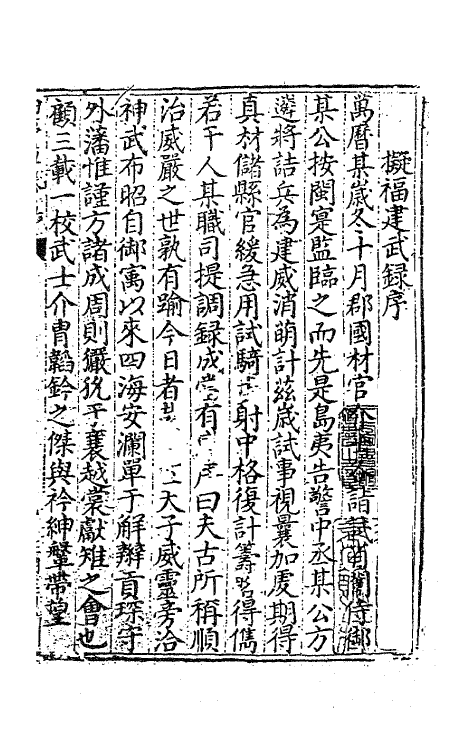 擬福建武録序
萬曆某歳冬十月郡國材官諸武
某公按閩寔監臨之而先是島夷告警中丞某公方
遴將詰兵為建威消萌計兹歳試事視曩加虔期得
真材儲縣官緩急用試騎射中格復計籌畧得儁
若干人某職司提調録成有曰夫古所稱順
治威嚴之世孰有踰今日者天子威靈旁洽
神武布昭自御寓以來四海安瀾單于解辮貢琛守
外藩惟謹方諸成周則玁狁平襄越裳獻雉之會也
顧三載一校武士介胄韜鈐之傑與衿紳鞶帶望